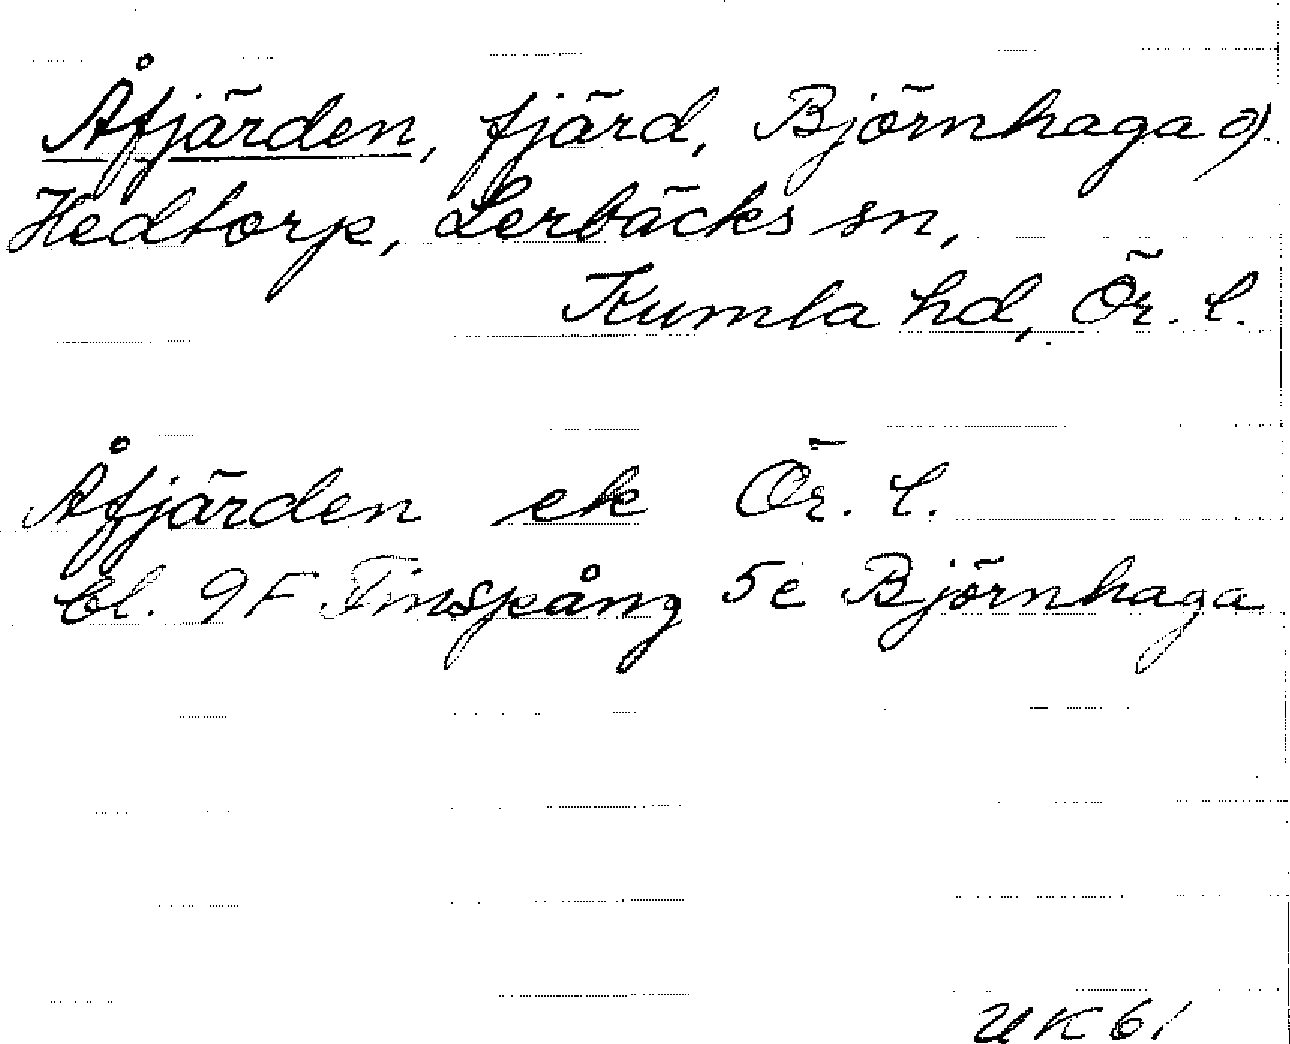 Åfjärden, fjärd, Björnhaga o)
Hedtorp, Lerbäcks sn,
Kumla hd, Ör. l.
Åfjärden ek Ör. l.
bl. 9F Finspång 5e Björnhaga
UK 61